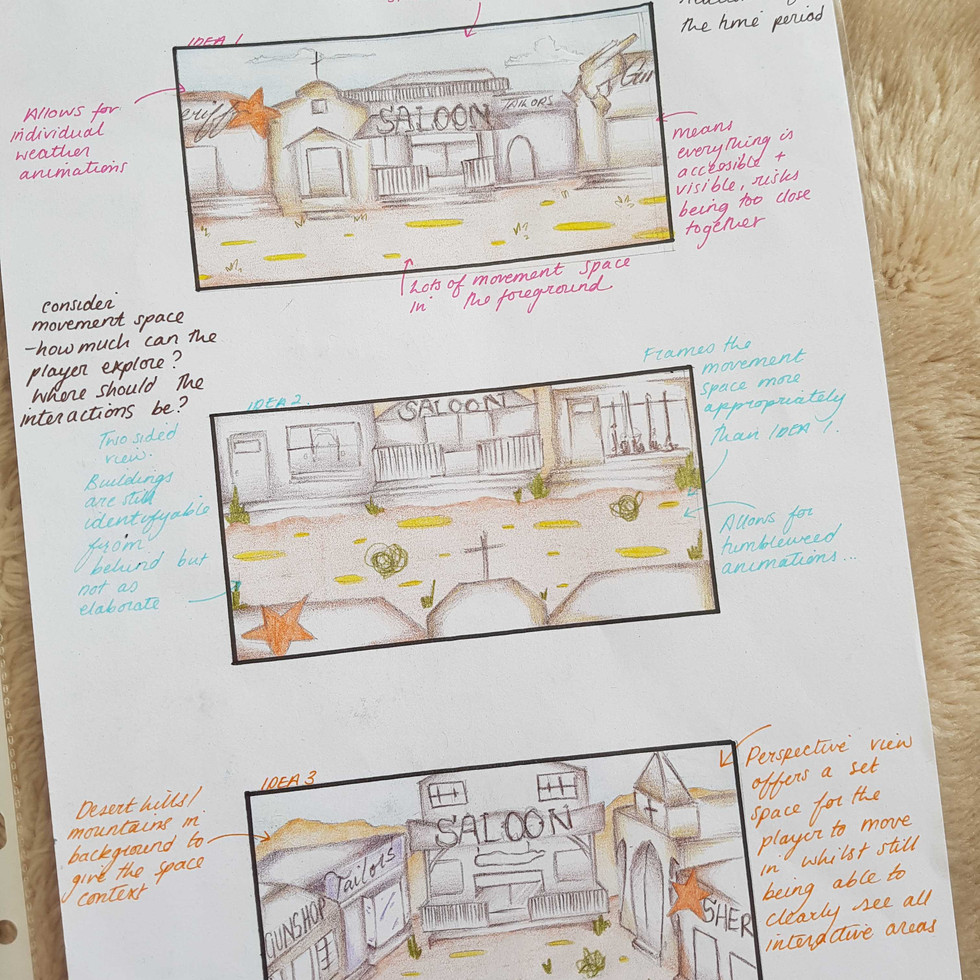 the time period
IDEA 1
Allows for
individual
weather
animations
eriff
SALOON
TAILORS
Gun
means
everything is
accesible +
visible, risks
being too close
together
Lots of movement space
in the foreground
consider
movement space
-how much can the
player explore?
Where should the
interactions be?
IDEA 2
SALOON
Frames the
movement
space more
appropriately
than IDEA 1.
Two sided
view.
Buildings
are still
identifyable
from
behind but
not as
elaborate
Allows for
tumbleweed
animations...
IDEA 3
Desert hills/
mountains in
background to
give the space
context
SALOON
Tailors
GUNSHOP
SHER
Perspective view
offers a set
space for the
player to move
in whilst still
being able to
clearly see all
interactive areas